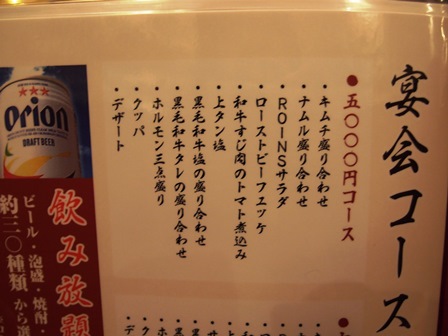 宴会コース
●五〇〇〇円コース
・キムチ盛り合わせ
・ナムル盛り合わせ
・ROINSサラダ
・ローストビーフユッケ
・和牛すじ肉のトマト煮込み
・上タン塩
・黒毛和牛塩の盛り合わせ
・黒毛和牛タレの盛り合わせ
・ホルモン三点盛り
・クッパ
・デザート
Orion
DRAFT BEER
飲み放題
ビール・泡盛・焼酎・
約三〇種類から選